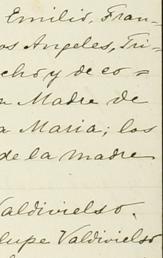 Emilio, Fran-
os Angeles, Tri-
cho y de co=
a Madre de
a Maria; los
de la madre
Valdivielso.
lupe Valdivielso